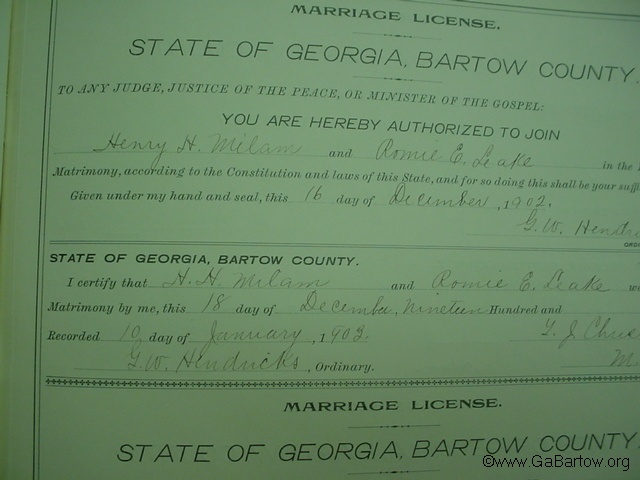 MARRIAGE LICENSE.
STATE OF GEORGIA, BARTOW COUNTY.
TO ANY JUDGE, JUSTICE OF THE PEACE, OR MINISTER OF THE GOSPEL:
YOU ARE HEREBY AUTHORIZED TO JOIN
Henry H. Milam and Romie E. Leake in the
Matrimony, according to the Constitution and laws of this State, and for so doing this shall be your
Given under my hand and seal, this 16 day of December, 1902.
G. W.
STATE OF GEORGIA, BARTOW COUNTY.
I certify that H. H. Milam and Romie E. Leake
Matrimony by me, this 18 day of December, nineteen Hundred and
Recorded 10 day of January, 1903.
G. W. Hendricks, Ordinary.
MARRIAGE LICENSE.
STATE OF GEORGIA, BARTOW COUNTY
©www.GaBartow.org